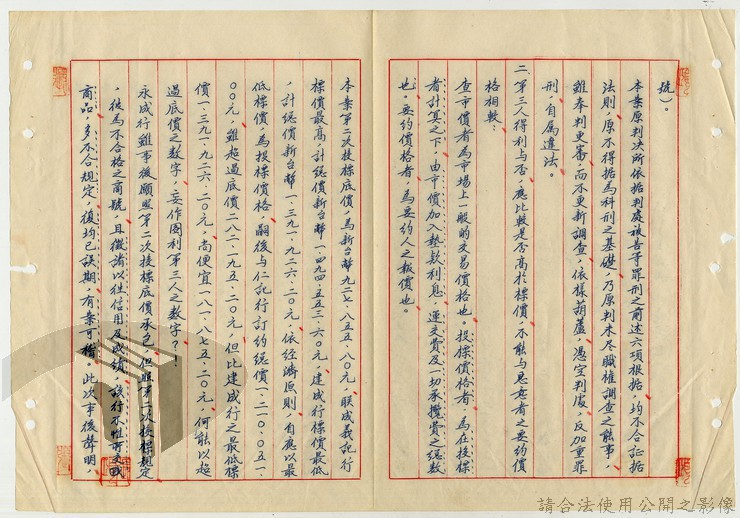 號)。
本案原判決所依据判處被告等罪刑之前述六項根据,均不合証据
法則,原不得据為科刑之基礎,乃原判未尽職權調查之能事,
雖奉判更審,而不更新調查,依樣葫蘆,憑空判處,反加重罪
刑,自屬違法。
二、第三人得利与否,應比較是否高於標價,不能与思惠者之要約價
格相較:
查市價者為市場上一般的交易價格也。投標價格者,為在投標
者計算之下,由市價加入墊款利息,運交費及一切承攬費之總数
也。要約價格者,為要約人之報價也。
本案第二次投標底價,為新台幣九二七.八五五.八〇元,联成義記行
標價最高,計總價新台幣一.四九四.五五三.六〇元,建成行標價最低
,計總價新台幣一.三九一.九二六.二〇元,依經濟原則,自應以最
低標價,為投標價格,嗣後与仁記行訂約總價一.二一〇.〇五一.
〇〇元,雖超過底價二八二.一九五.二〇元,但比建成行之最低標
價一.三九一.九二六.二〇元,尚便宜一八一.八七五.二〇元,何能以超
過底價之数字,妄作圖利第三人之数字?!
永成行雖事後願照第二次投標底價承包,但照第二次投標規定
,彼為不合格之商號,且徵諸以往信用及成績,該行不惟所交
商品,多不合規定,復均已誤期,有案可稽。此次事後聲明,
請合法使用公開之影像